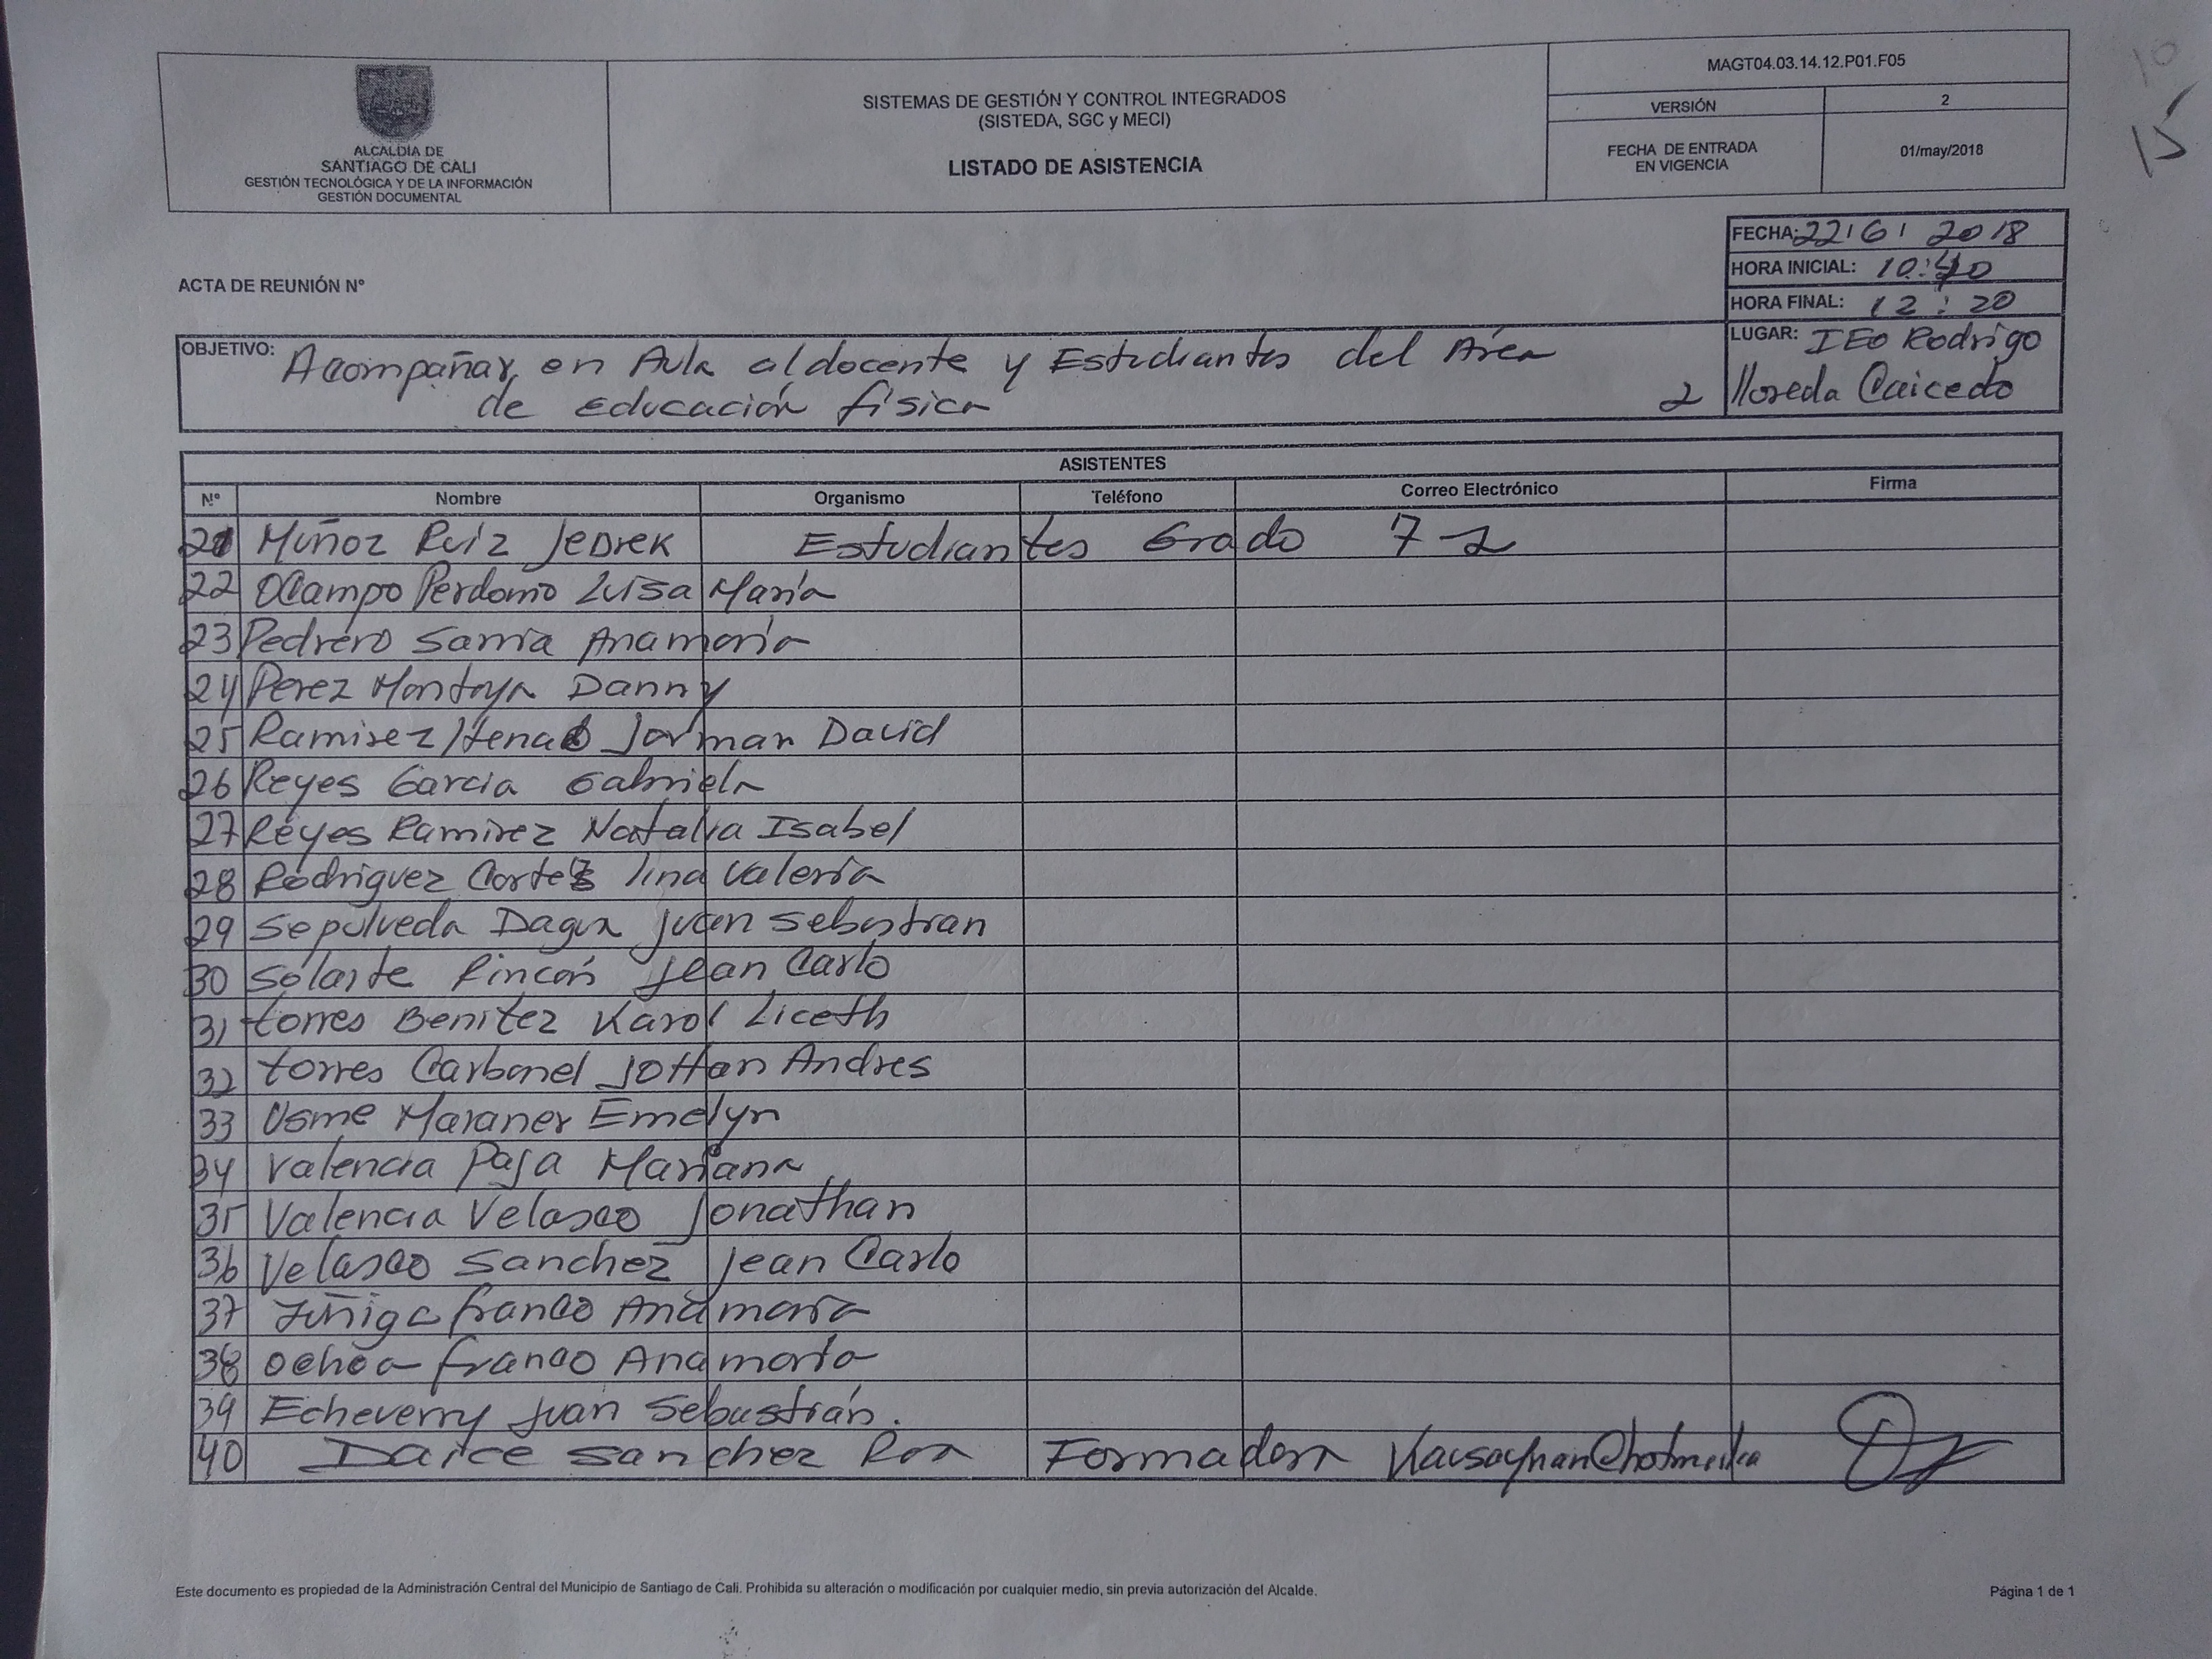 ALCALDÍA DE
SANTIAGO DE CALI
GESTIÓN TECNOLÓGICA Y DE LA INFORMACIÓN
GESTIÓN DOCUMENTAL
SISTEMAS DE GESTIÓN Y CONTROL INTEGRADOS
(SISTEDA, SGC y MECI)
LISTADO DE ASISTENCIA
MAGT04.03.14.12.P01.F05
VERSIÓN 2
FECHA DE ENTRADA
EN VIGENCIA
01/may/2018
10
15
FECHA: 22 / 6 / 2018
HORA INICIAL: 10:40
HORA FINAL: 12:20
ACTA DE REUNIÓN N°
LUGAR: IEO Rodrigo
lloreda Caicedo
OBJETIVO: Acompañar en Aula al docente y Estudiantes del Área
de educación física 2
ASISTENTES
N° Nombre Organismo Teléfono Correo Electrónico Firma
21 Muñoz Ruiz Jedrek Estudiantes Grado 7-2
22 Ocampo Perdomo Luisa María
23 Pedrero Sarria Ana maría
24 Perez Montoya Danny
25 Ramirez Henao Jorman David
26 Reyes Garcia Gabriela
27 Reyes Ramirez Natalia Isabel
28 Rodriguez Cortez lina Valeria
29 Sepulveda Dagua Juan Sebastian
30 Solarte Rincón Jean Carlo
31 torres Benitez Karol Liceth
32 torres Carbonel JoHan Andres
33 Usme Maraner Emelyn
34 Valencia Paja Mariana
35 Valencia Velasco Jonathan
36 Velasco Sanchez Jean Carlo
37 Zuñiga franco Ana maría
38 Ochoa franco Ana maría
39 Echeverry Juan Sebastián.
40 Darce Sanchez Formadora
Este documento es propiedad de la Administración Central del Municipio de Santiago de Cali. Prohibida su alteración o modificación por cualquier medio, sin previa autorización del Alcalde.
Página 1 de 1